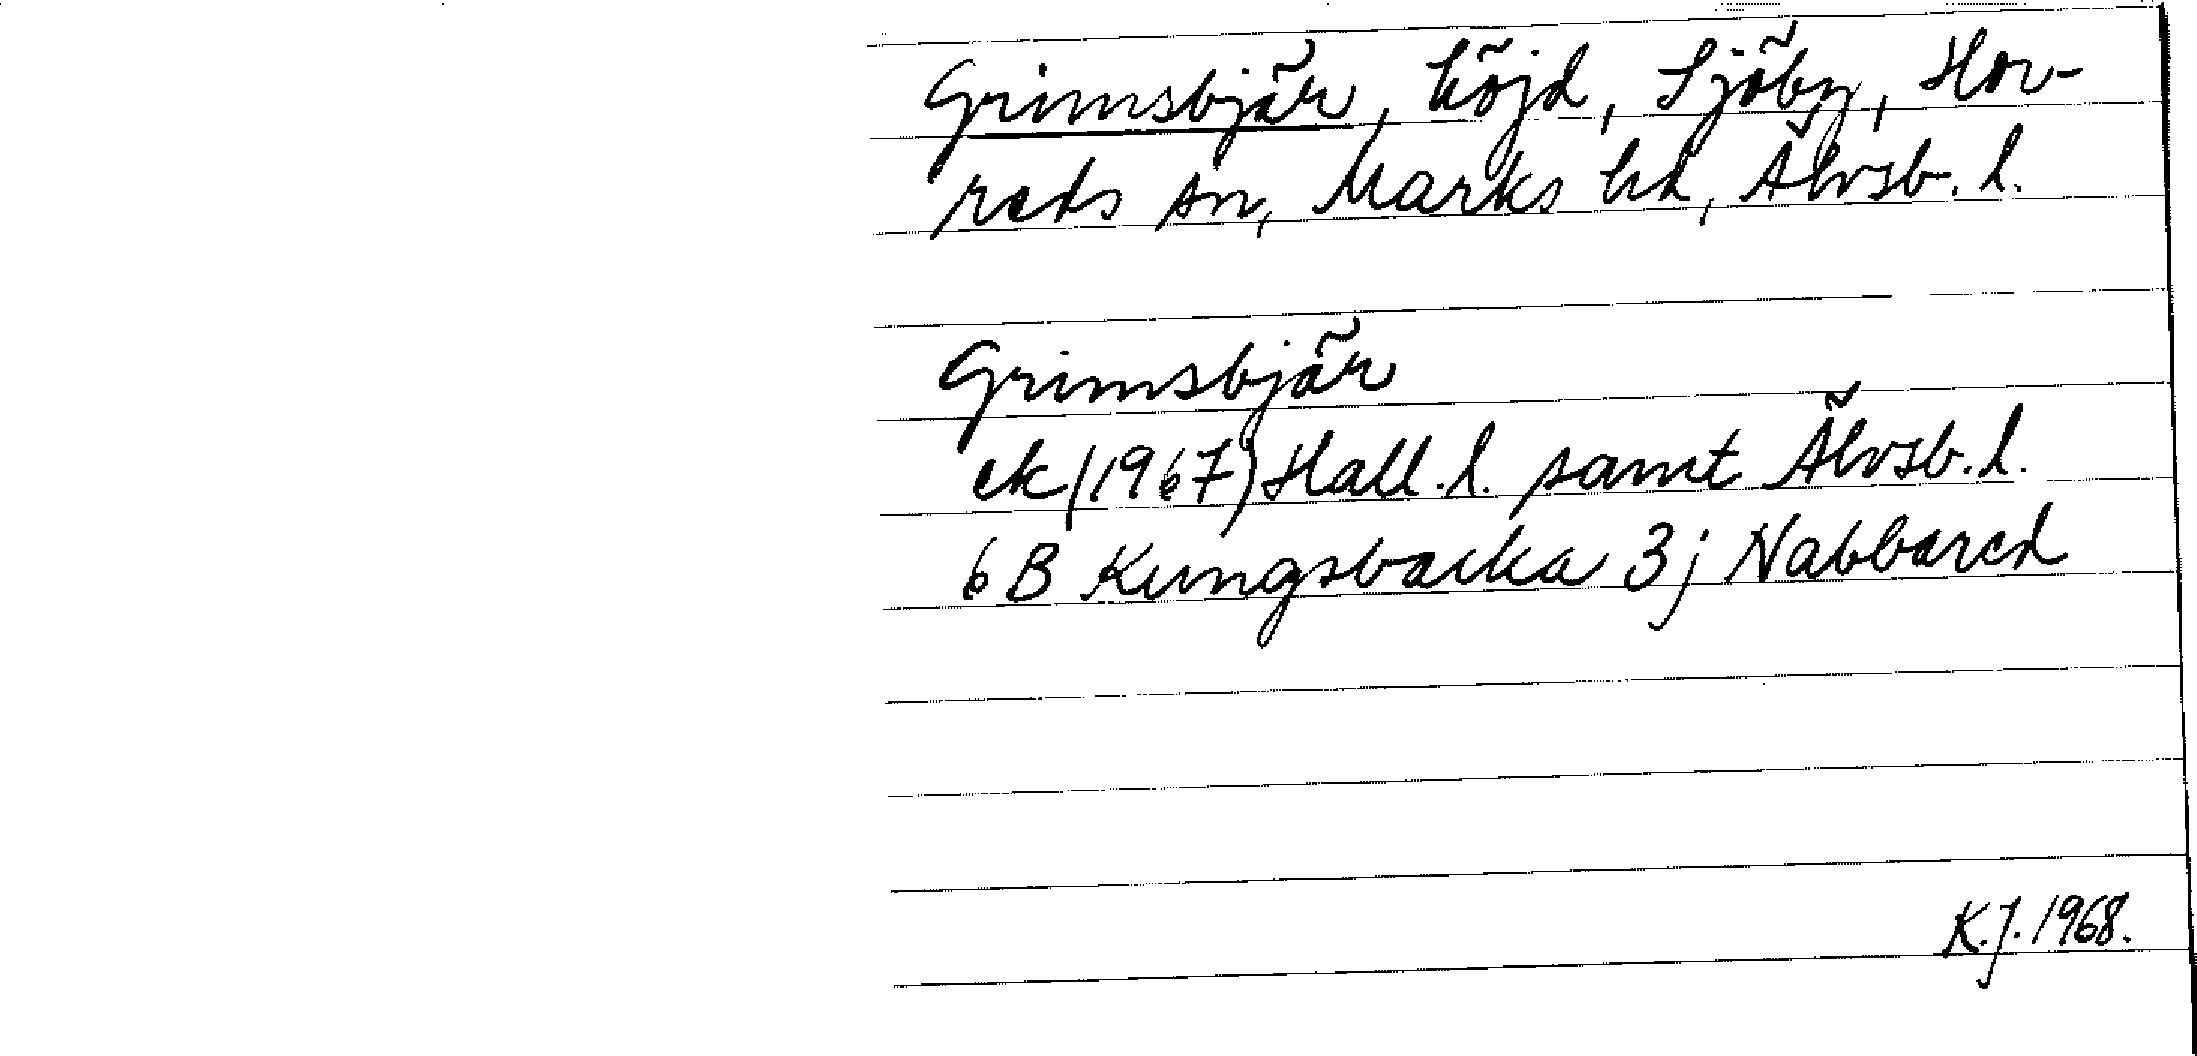 Grimsbjär, höjd, Sjöby, Hor-
reds sn, Marks hd, Älvsb. l.
Grimsbjär
ek (1967) Hall. l. samt Älvsb. l.
6 B Kungsbacka 3 j Nabbared
K.J. 1968.